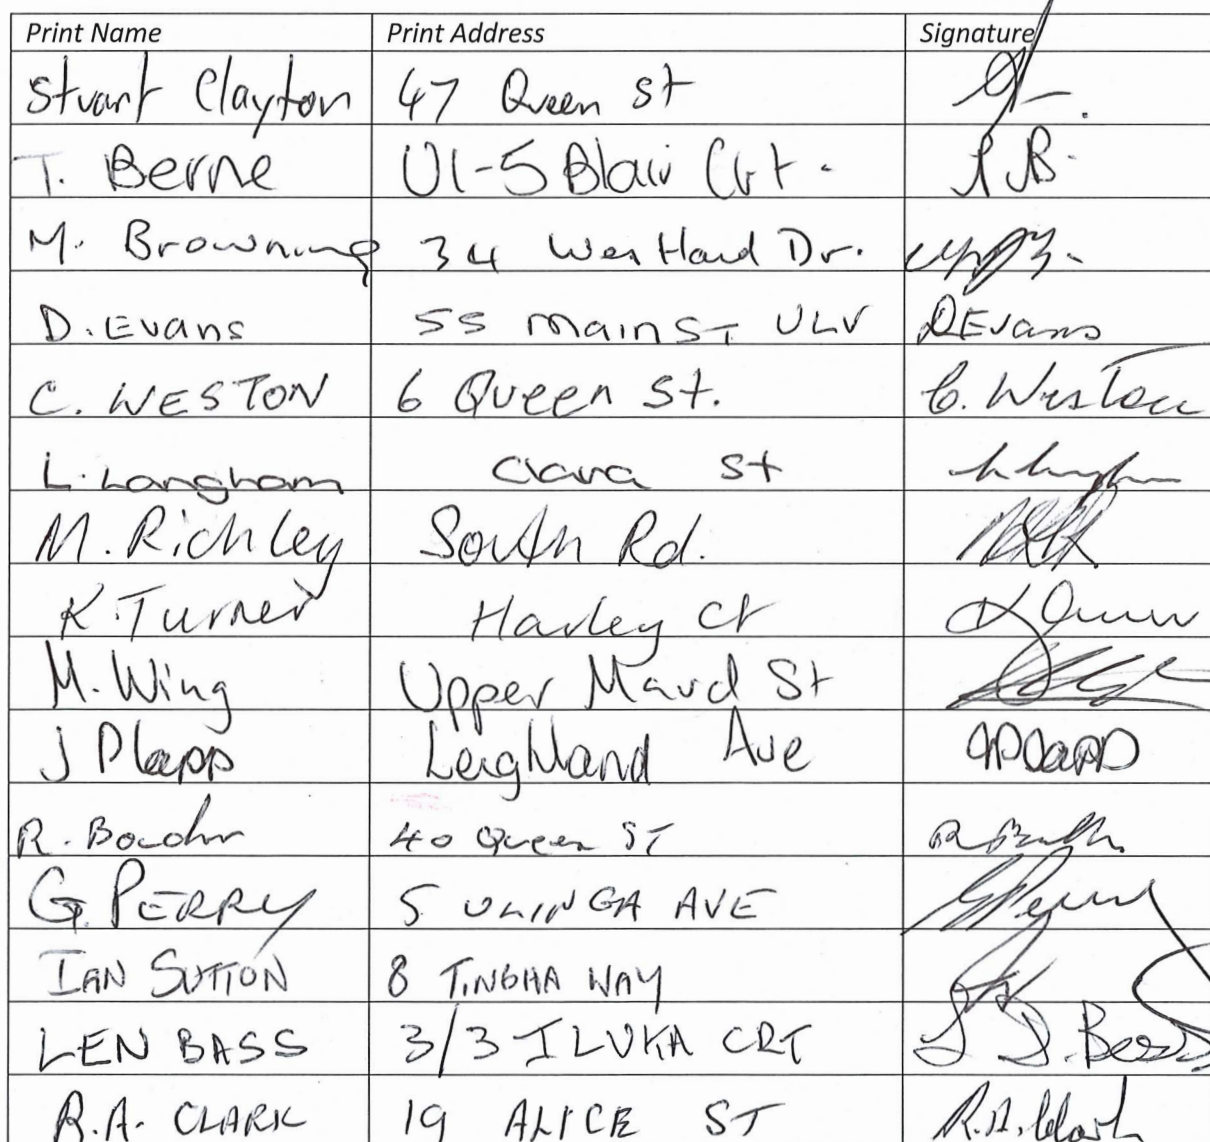 Print Name Print Address Signature
Stuart Clayton 47 Queen St
T. Berne U1-5 Blair Crt. T B.
M. Browning 34 Westland Dr.
D. Evans 55 Main ST ULV D Evans
C. WESTON 6 Queen St. C. Weston
L. Langham Clara St
M. Richley South Rd.
K. Turner Harley Ct
M. Wing Upper Maud St
J Plapp Leighland Ave J Plapp
R. 40 Queen ST
G. PERRY 5 ULINGA AVE G Perry
IAN SUTTON 8 TINGHA WAY
LEN BASS 3/3 ILUKA CRT L D. Bass
R.A. CLARK 19 ALICE ST R.A. Clark